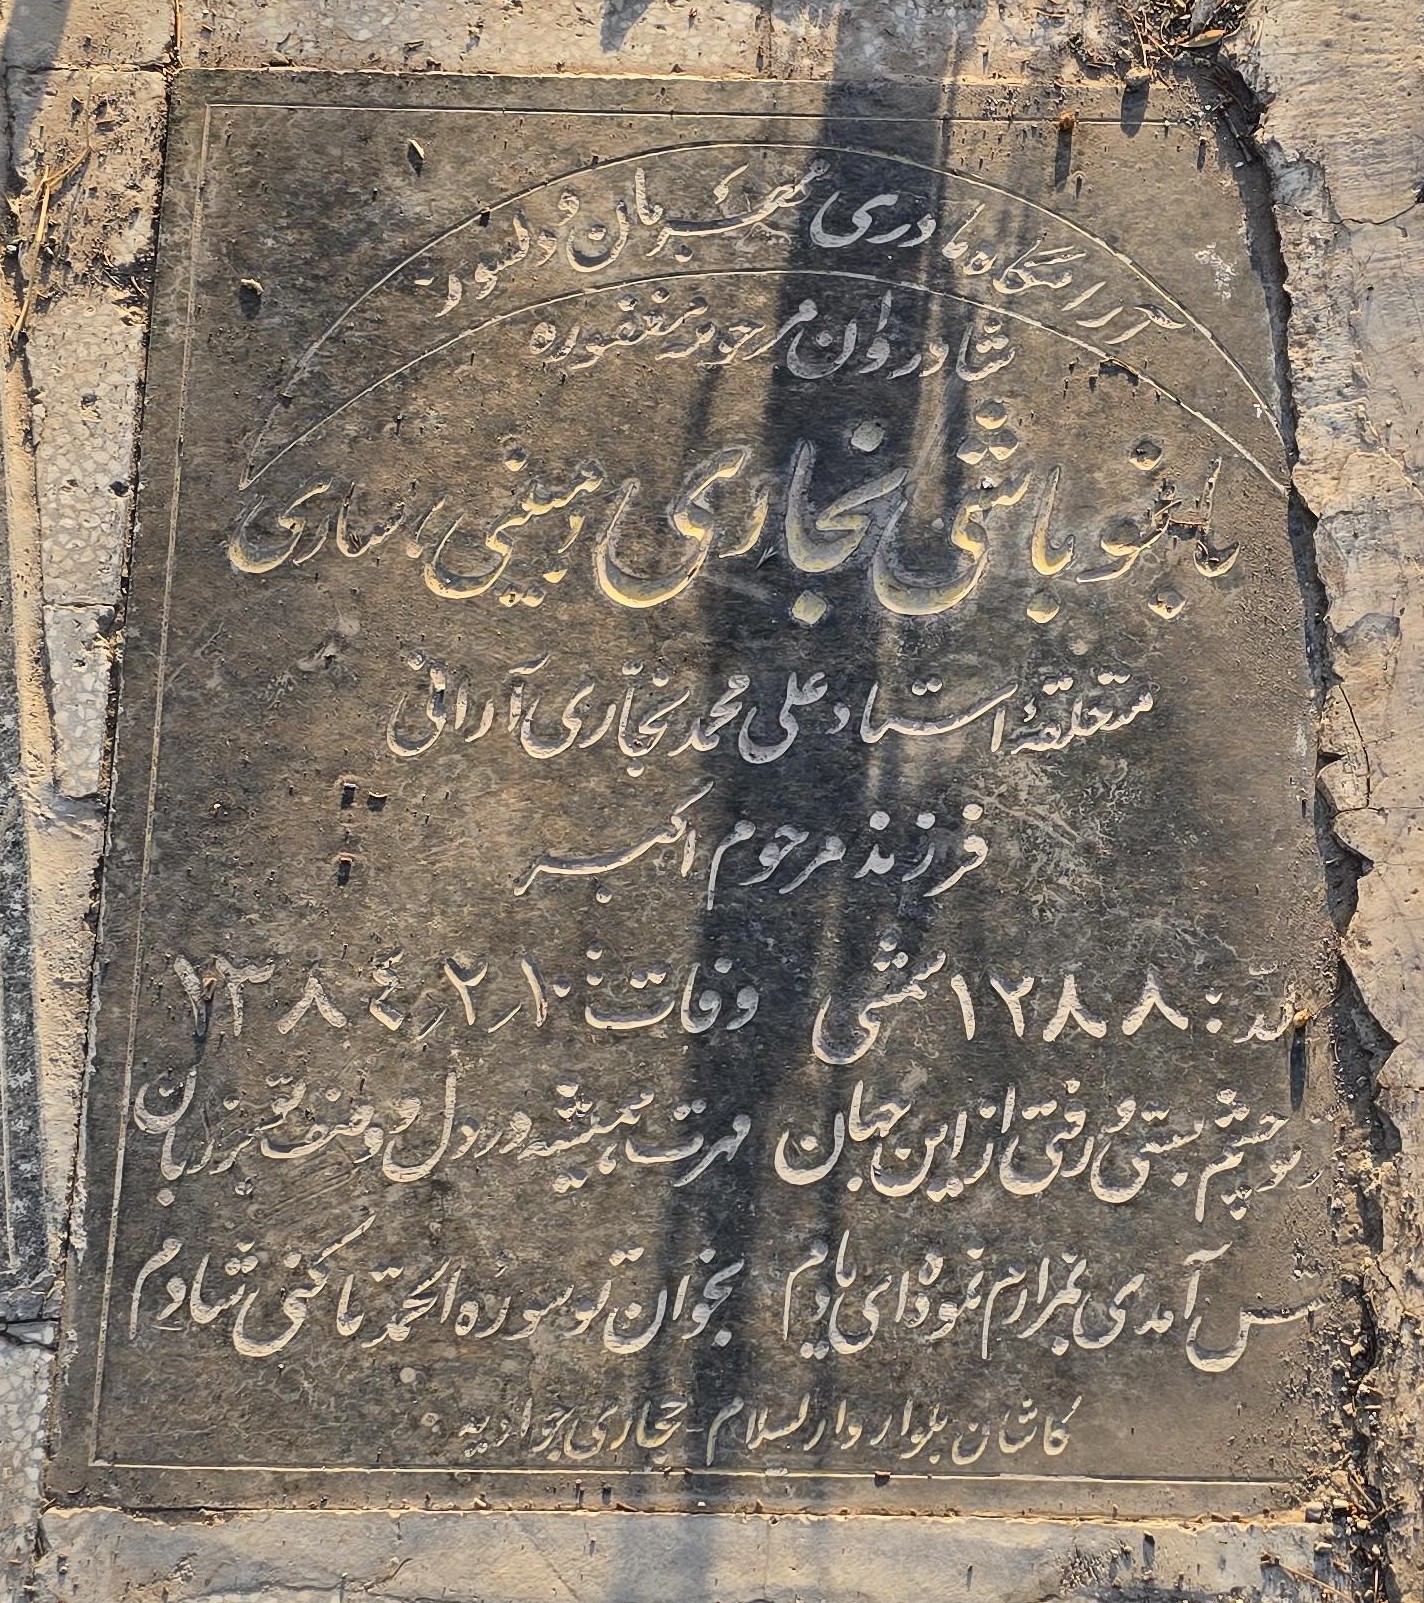 آرامگاه مادری مهربان و دلسوز
شادروان مرحومه مغفوره
بانو باشی نجاری وسفی بساری
متعلقهٔ استاد علی محمد نجاری آرانی
فرزند مرحوم اکبر
تولد: ۱۲۸۸ شمسی وفات: ۱۰/۲/۱۳۸۴
تو چشم بستی و رفتی از این جهان مهرت همیشه در دل و وصف تو بر زبان
آمدی بمزارم نموده‌ای یادم بخوان تو سوره الحمد تا کنی شادم
کاشان بلوار دارلسلام - حجاری جوادیه